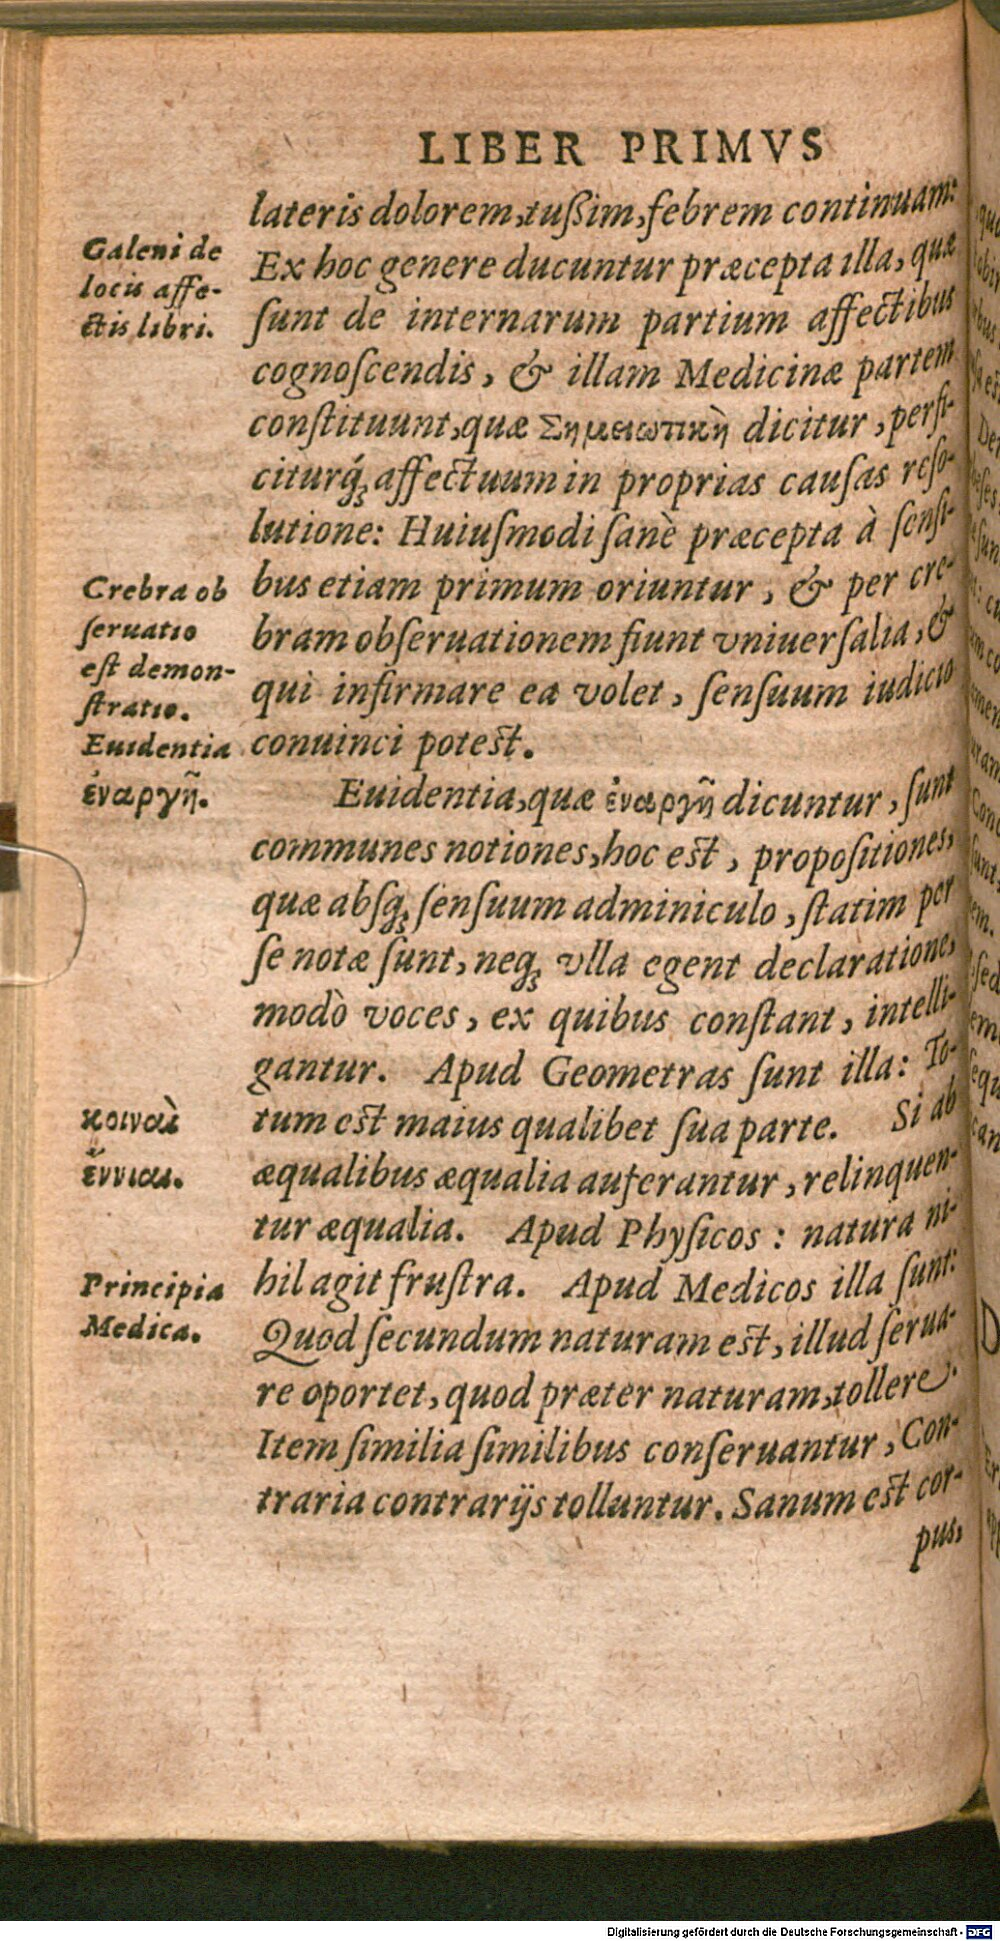 LIBER PRIMVS
lateris dolorem, tußim, febrem continuam:
Ex hoc genere ducuntur præcepta illa, quæ
ſunt de internarum partium affectibus
cognoſcendis, & illam Medicinæ partem
conſtituunt, quæ Σημειωτικὴ dicitur, perfi-
citurq́; affectuum in proprias cauſas reſo-
lutione: Huiuſmodi ſanè præcepta à ſenſi-
bus etiam primum oriuntur, & per cre-
bram obſeruationem fiunt vniuerſalia, &
qui infirmare ea volet, ſenſuum iudicio
conuinci poteſt.
Euidentia, quæ ἐναργῆ dicuntur, ſunt
communes notiones, hoc eſt, propoſitiones,
quæ abſq; ſenſuum adminiculo, ſtatim per
ſe notæ ſunt, neq; vlla egent declaratione,
modò voces, ex quibus conſtant, intelli-
gantur. Apud Geometras ſunt illa: To-
tum eſt maius qualibet ſua parte. Si ab
æqualibus æqualia auferantur, relinquen-
tur æqualia. Apud Phyſicos: natura ni-
hil agit fruſtra. Apud Medicos illa ſunt:
Quod ſecundum naturam eſt, illud ſerua-
re oportet, quod præter naturam, tollere.
Item ſimilia ſimilibus conſeruantur, Con-
traria contrarijs tolluntur. Sanum eſt cor-
pus,
Galeni de
locis affe-
ctis libri.
Crebra ob
ſeruatio
eſt demon-
ſtratio.
Euidentia
ἐναργῆ.
κοιναὶ
ἔννιαι.
Principia
Medica.
Digitalisierung gefördert durch die Deutsche Forschungsgemeinschaft - DFG